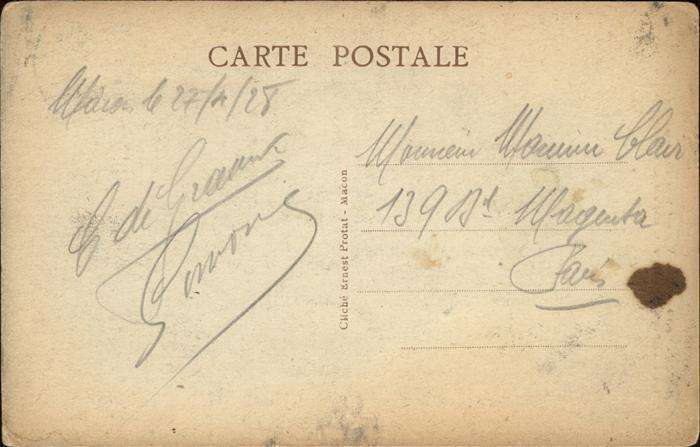 CARTE POSTALE
Macon le 27/4/28
Monsieur Maxime Clair
139 Bd Magenta
Paris
Simone
Cliché Ernest Protat - Macon